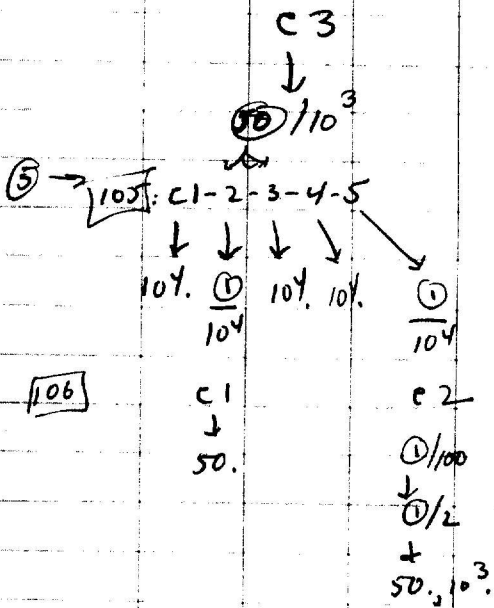 C3
↓
50/10³
⑤ → 105: C1-2-3-4-5
↓ ↓ ↓ ↘ ↘
10⁴. ①/10⁴ 10⁴. 10⁴. ①/10⁴
106 C1 C2
↓ ①/100
50. ↓
①/2
↓
50., 10³.